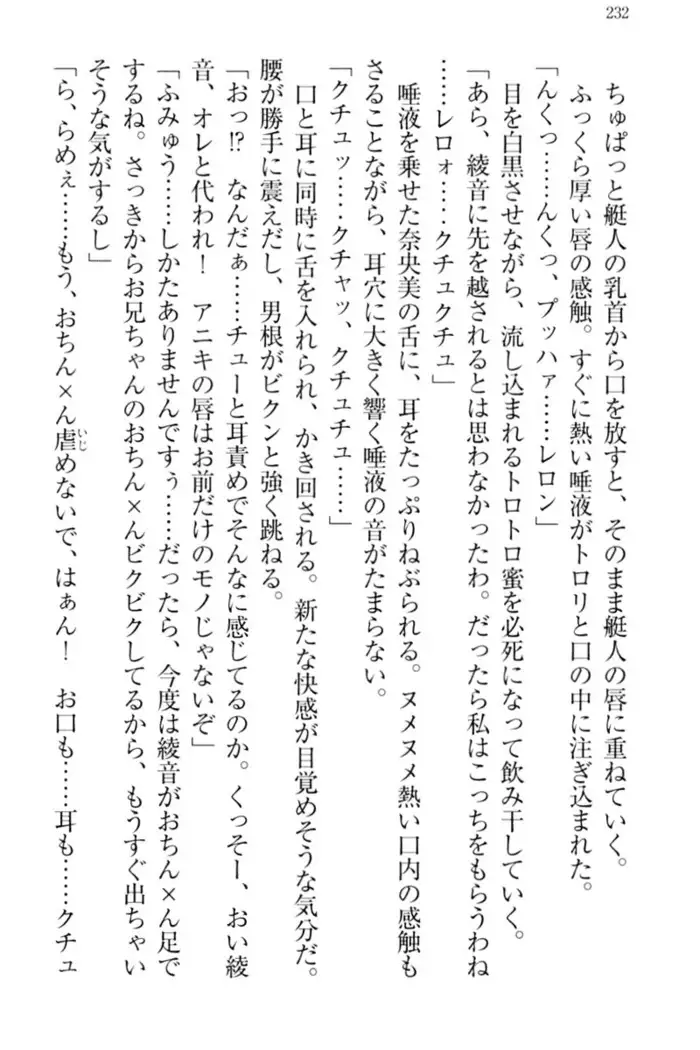 232
ちゅぱっと艇人の乳首から口を放すと、そのまま艇人の唇に重ねていく。
ふっくら厚い唇の感触。すぐに熱い唾液がトロリと口の中に注ぎ込まれた。
「んくっ……んくっ、プッハァ……レロン」
目を白黒させながら、流し込まれるトロトロ蜜を必死になって飲み干していく。
「あら、綾音に先を越されるとは思わなかったわ。だったら私はこっちをもらうわね
……レロォ……クチュクチュ」
唾液を乗せた奈央美の舌に、耳をたっぷりねぶられる。ヌメヌメ熱い口内の感触も
さることながら、耳穴に大きく響く唾液の音がたまらない。
「クチュッ……クチャッ、クチュチュ……」
口と耳に同時に舌を入れられ、かき回される。新たな快感が目覚めそうな気分だ。
腰が勝手に震えだし、男根がビクンと強く跳ねる。
「おっ!?　なんだぁ……チューと耳責めでそんなに感じてるのか。くっそー、おい綾
音、オレと代われ！　アニキの唇はお前だけのモノじゃないぞ」
「ふみゅう……しかたありませんですぅ……だったら、今度は綾音がおちん×ん足で
するね。さっきからお兄ちゃんのおちん×んビクビクしてるから、もうすぐ出ちゃい
そうな気がするし」
「ら、らめぇ……もう、おちん×ん虐いじめないで、はぁん！　お口も……耳も……クチュ